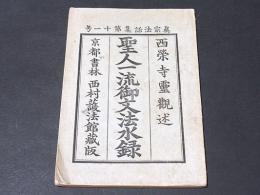 眞宗法話集第十一号
西榮寺靈觀述
聖人一流御文法水録
京都書林 西村護法館藏版